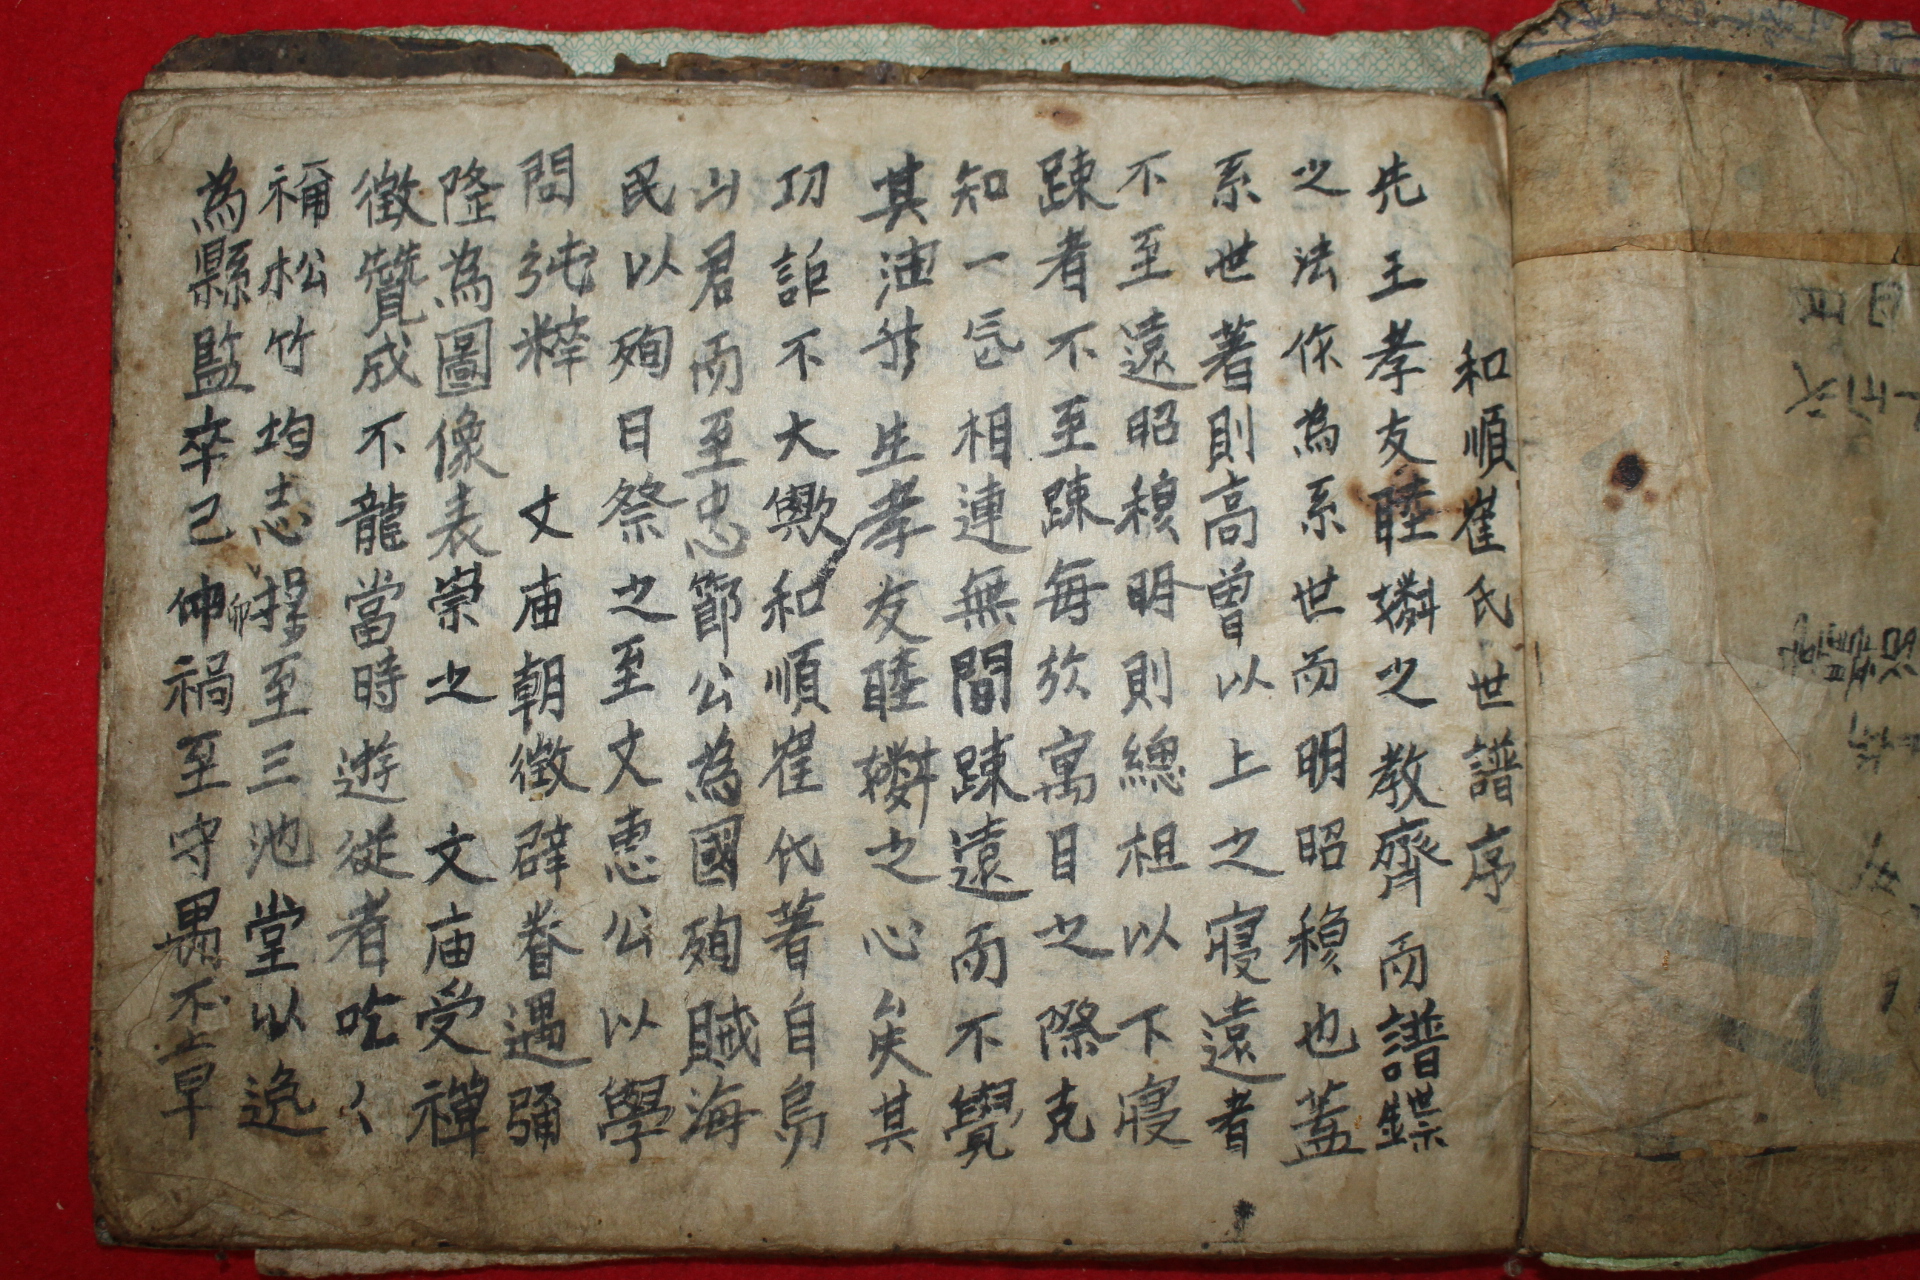 和順崔氏世譜序
先王孝友睦婣之教齊而譜鏶
之法作為系世而明昭穆也蓋
系世著則高曾以上之寢遠者
不至遠昭穆明則總祖以下寢
踈者不至踈每於寓目之際克
知一氣相連無間踈遠而不覺
其油然生孝友睦婣之心矣其
功詎不大歟和順崔氏著自烏
山君而至忠節公為國殉賊海
民以殉日祭之至文惠公以學
問純粹 文庙朝徵辟眷遇彌
隆為圖像表崇之 文庙受禪
徵贊成不龍當時遊従者吃〻
稱松竹均志操至三池堂以逸
為縣監卒己卯禍至守愚不幸